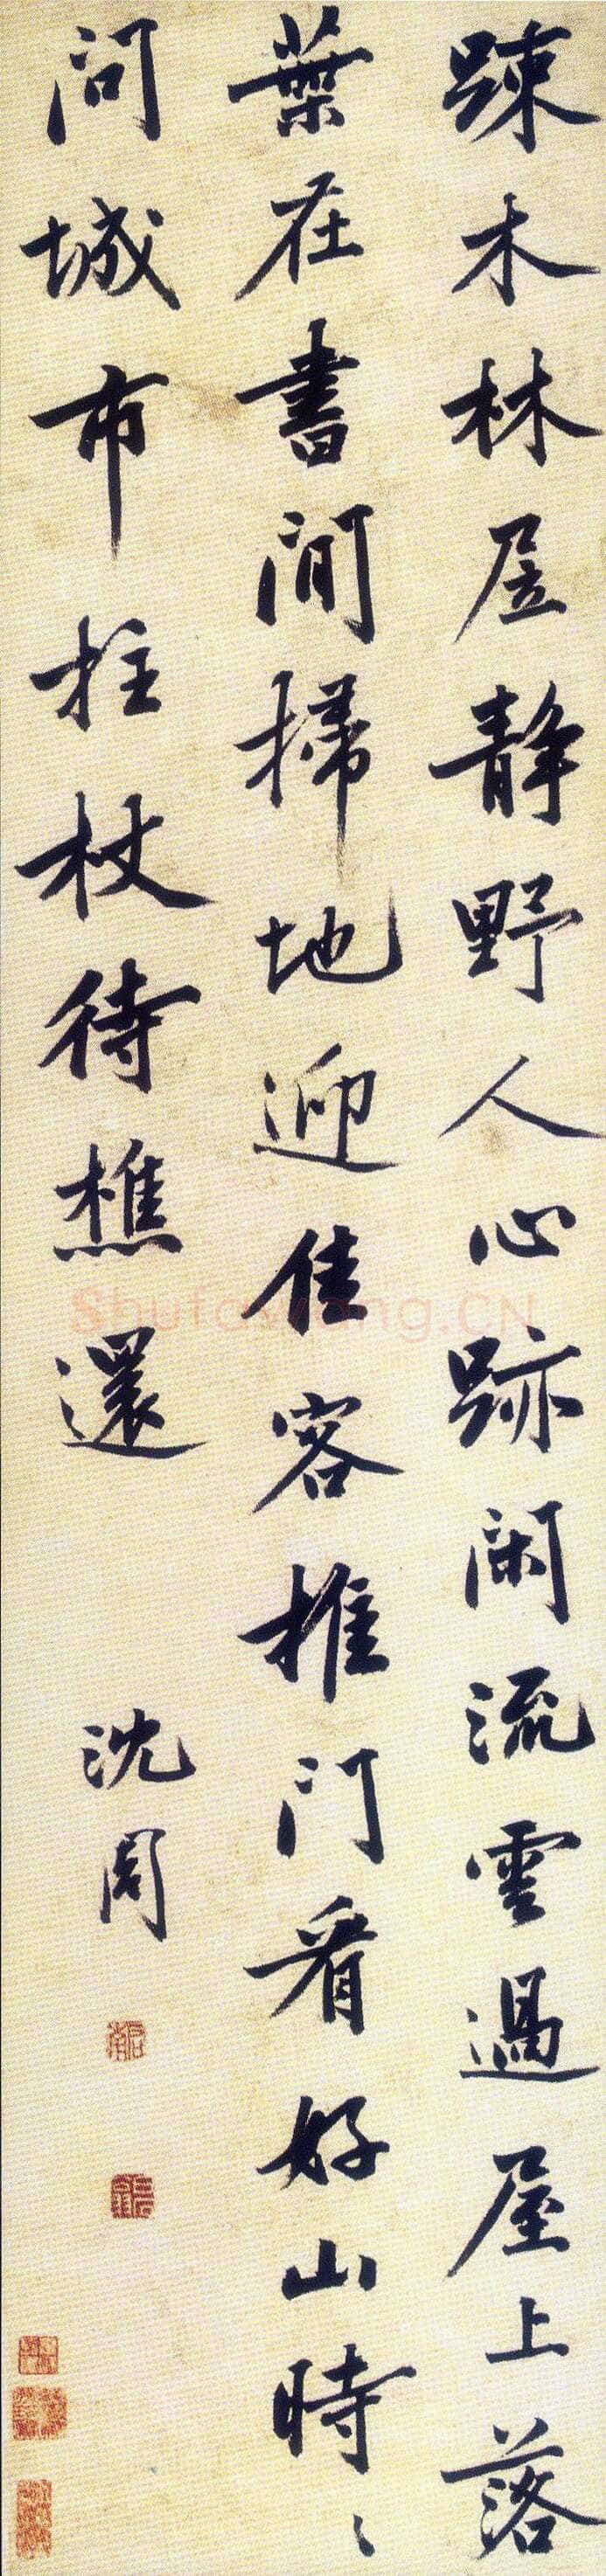 踈木林居静野人心跡闲流雲過屋上落
葉在書間掃地迎佳客推門看好山時〻
問城市拄杖待樵還
沈周
Shufawang.CN